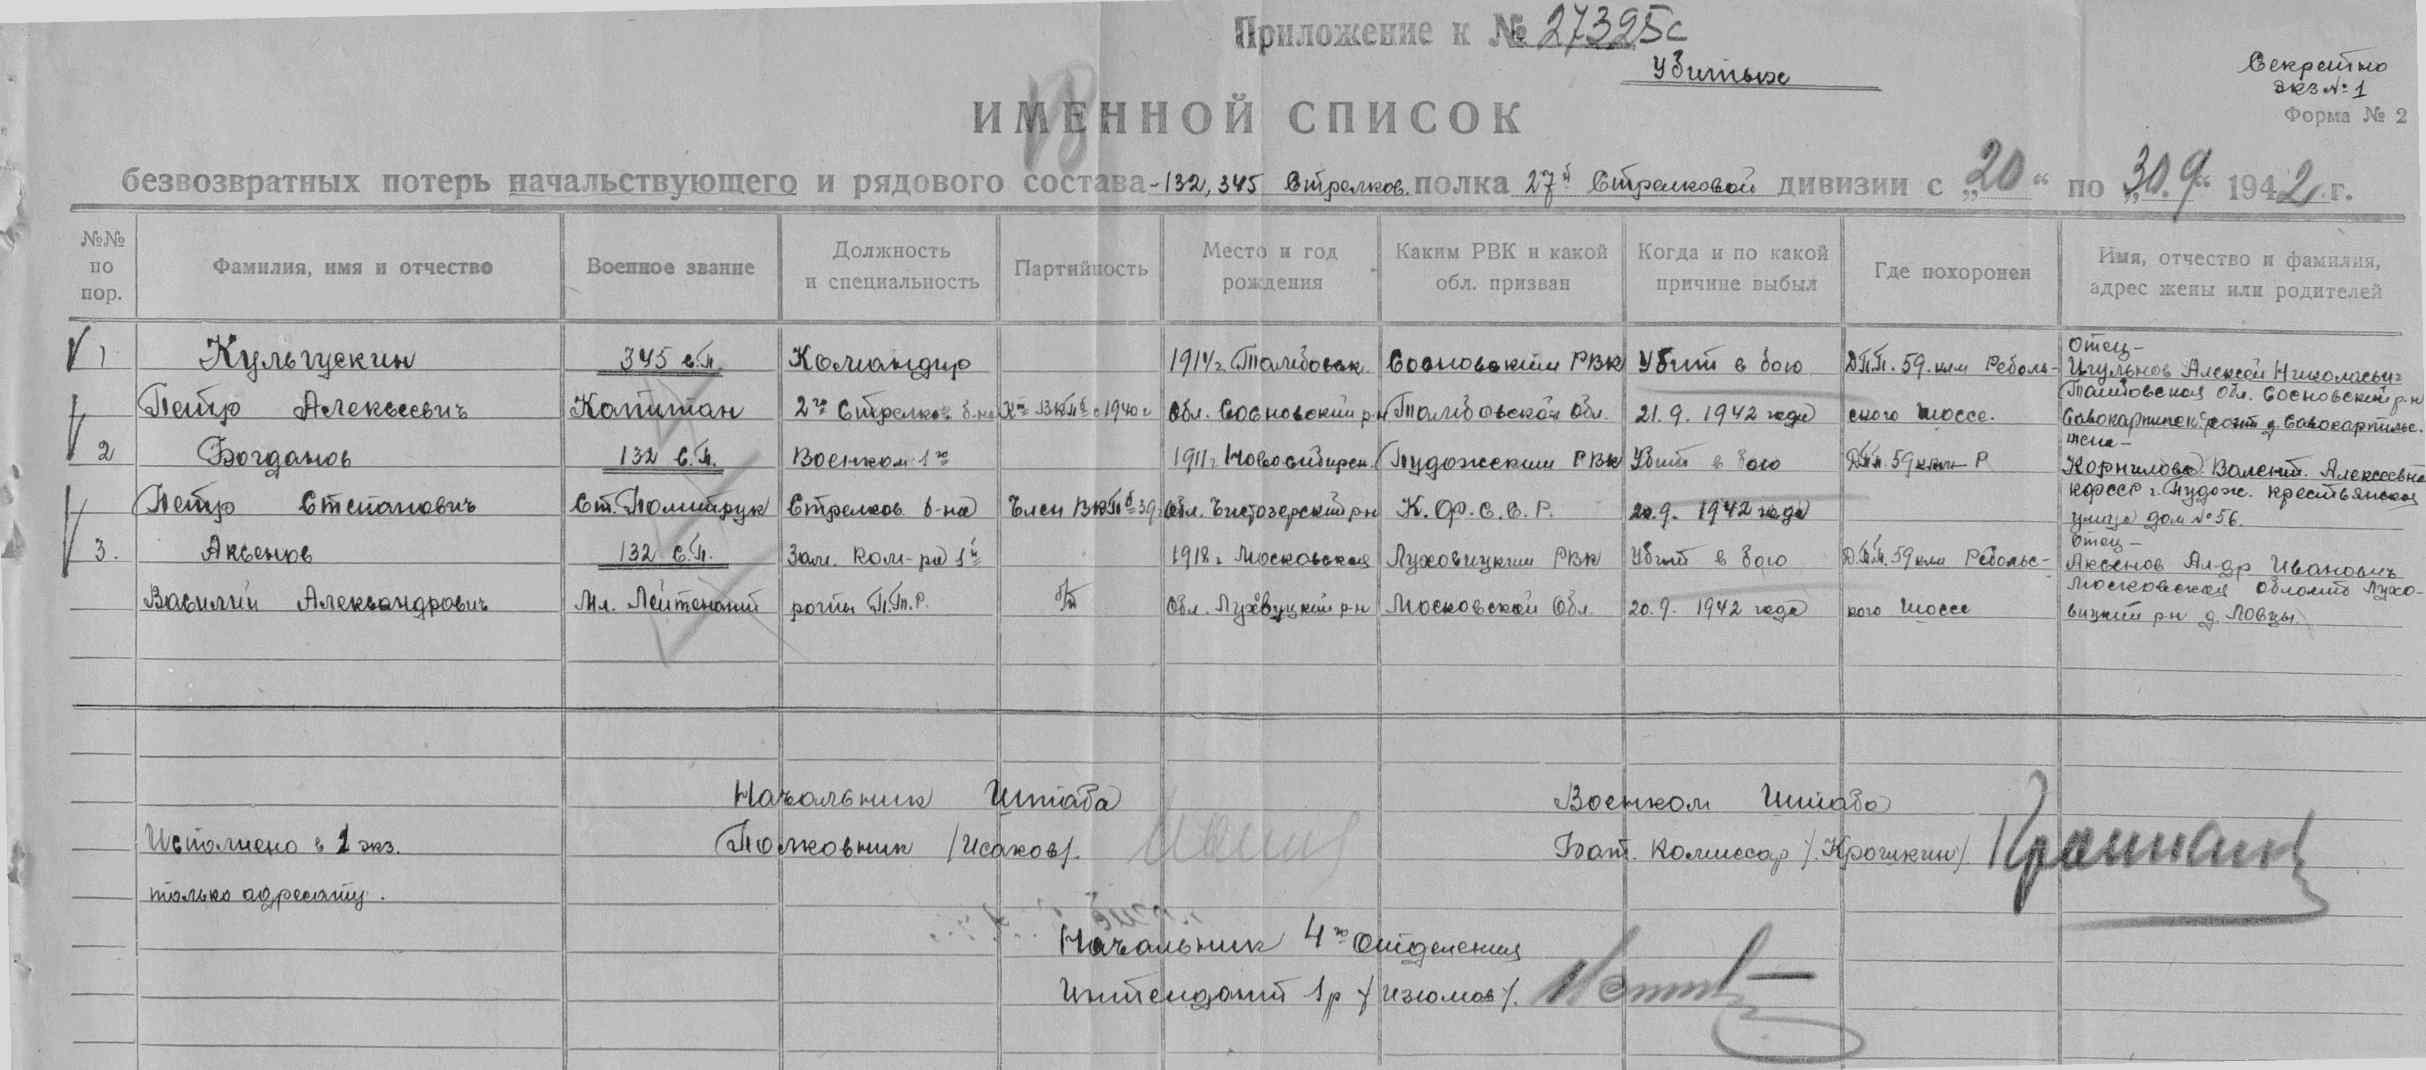 Приложение к № 27395с
Убитых
Секретно
экз № 1
Форма № 2
ИМЕННОЙ СПИСОК
безвозвратных потерь начальствующего и рядового состава - 132, 345 Стрелков. полка 27й Стрелковой дивизии с „20“ по „30.9“ 1942 г.
№№ по пор.
Фамилия, имя и отчество
Военное звание
Должность и специальность
Партийность
Место и год рождения
Каким РВК и какой обл. призван
Когда и по какой причине выбыл
Где похоронен
Имя, отчество и фамилия, адрес жены или родителей
1 Кульгускин 345 с.п. Командир 1914 г. Тамбовск. Сосновский РВК Убит в бою ДПП. 59 клм Реболь- Отец- Алексей Николаевич
Петр Алексеевич Капитан 2го Стрелков. б-на ВКПб с 1940 г Обл. Сосновский р-н Тамбовской Обл. 21.9.1942 года ского шоссе. Тамбовская Обл. Сосновский р-н
2 Богданов 132 с.п. Военком 1го 1911 г. Новосибирск. Пудожский РВК Убит в бою ДПП. 59 клм Р жена- Корнилова Валент. Алексеевна
Петр Степанович Ст. Политрук Стрелков б-на Член ВКПб 39 Обл. Чистозерский р-н К.Ф.С.С.Р. 20.9. 1942 года КФССР г. Пудож. Крестьянская улица дом № 56.
3. Аксенов 132 с.п. Зам. ком-ра 1й 1918 г. Московская Луховицкий РВК Убит в бою ДПП. 59 клм Ребольс- Отец- Аксенов Ал-др Иванович
Василий Александрович Мл. Лейтенант роты П.Т.Р. б/п Обл. Луховицкий р-н Московской Обл. 20.9. 1942 года кого шоссе Московская область Лухо-
вицкий р-н д. Ловцы.
Начальник Штаба
Военком Штаба
Исполнено в 1 экз.
Полковник /Исаков/.
Бат. Комиссар /Крошкин/
только адресату.
Начальник 4го Отделения
Интендант 1р /Изюмов/.